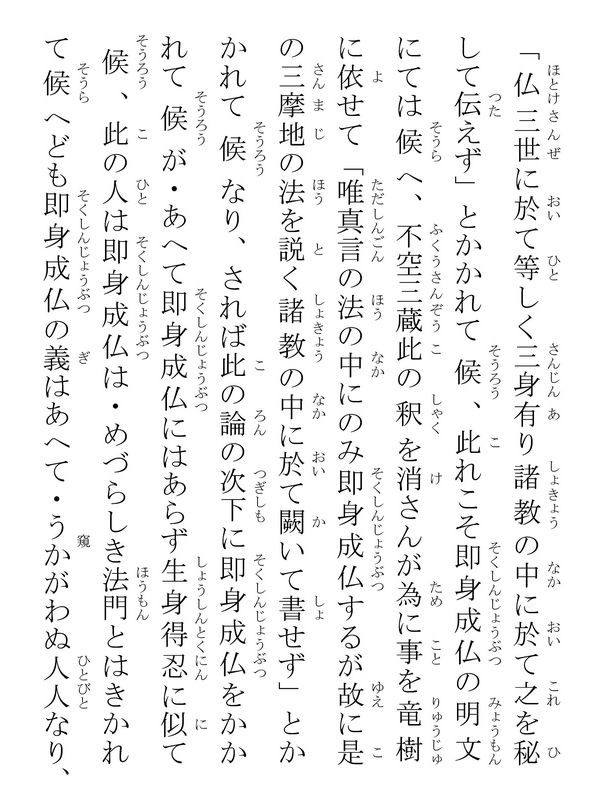 「仏三世に於て等しく三身有り諸教の中に於て之を秘
して伝えず」とかかれて候、此れこそ即身成仏の明文
にては候へ、不空三蔵此の釈を消さんが為に事を竜樹
に依せて「唯真言の法の中にのみ即身成仏するが故に是
の三摩地の法を説く諸教の中に於て闕いて書せず」とか
かれて候なり、されば此の論の次下に即身成仏をかか
れて候が・あへて即身成仏にはあらず生身得忍に似て
候、此の人は即身成仏は・めづらしき法門とはきかれ
て候へども即身成仏の義はあへて・うかがわぬ人人なり、